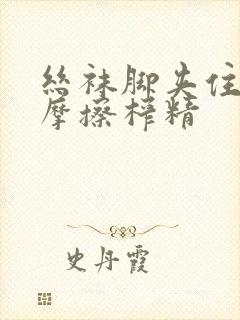 丝袜脚夹住
摩擦榨精
史丹霞